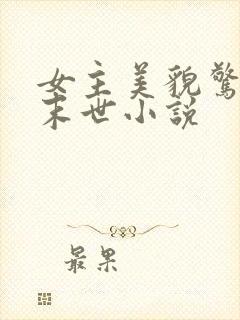 女主美貌驚
末世小説
最果